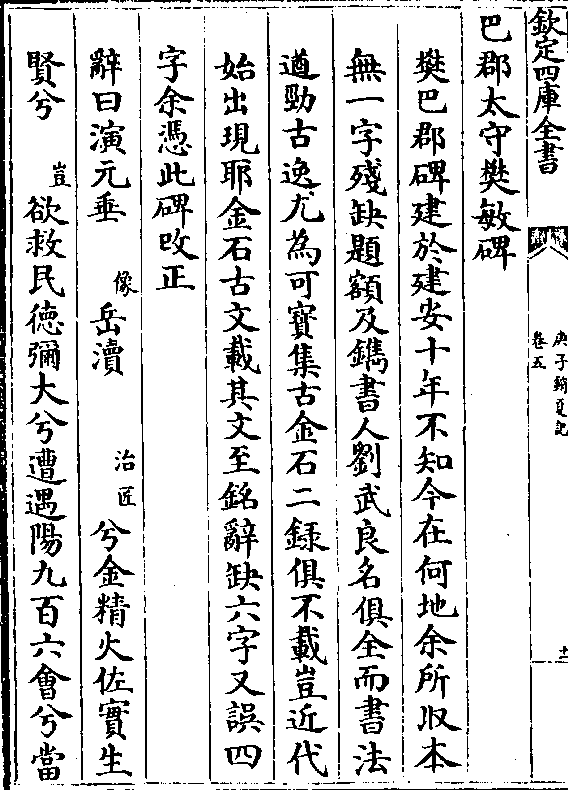 欽定四庫全書
庚子銷夏記
卷五
巴郡太守樊敏碑
樊巴郡碑建於建安十年不知今在何地余所収本
無一字殘缺題額及鐫書人劉武良名俱全而書法
遒勁古逸尤為可寶集古金石二録俱不載豈近代
始出現耶金石古文載其文至銘辭缺六字又誤四
字余憑此碑改正
辭曰演元垂 像 岳瀆 治匠 兮金精火佐實生
賢兮 豈 欲救民徳彌大兮遭遇陽九百六會兮當